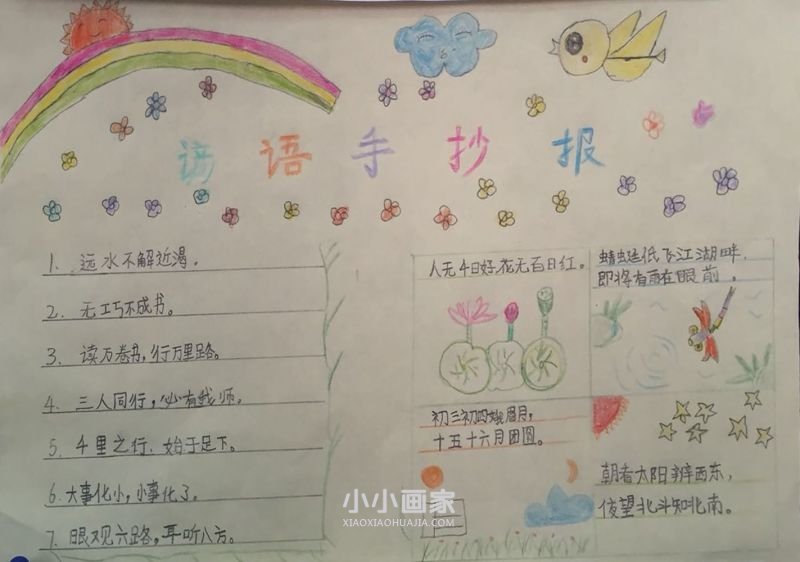 谚语手抄报
1. 远水不解近渴。
2. 无巧不成书。
3. 读万卷书,行万里路。
4. 三人同行,必有我师。
5. 千里之行,始于足下。
6. 大事化小,小事化了。
7. 眼观六路,耳听八方。
人无千日好,花无百日红。
蜻蜓低飞江湖畔,
即将有雨在眼前。
初三初四娥眉月,
十五十六月团圆。
朝看太阳辨西东,
夜望北斗知北南。
小小画家
XIAOXIAOHUAJIA.COM